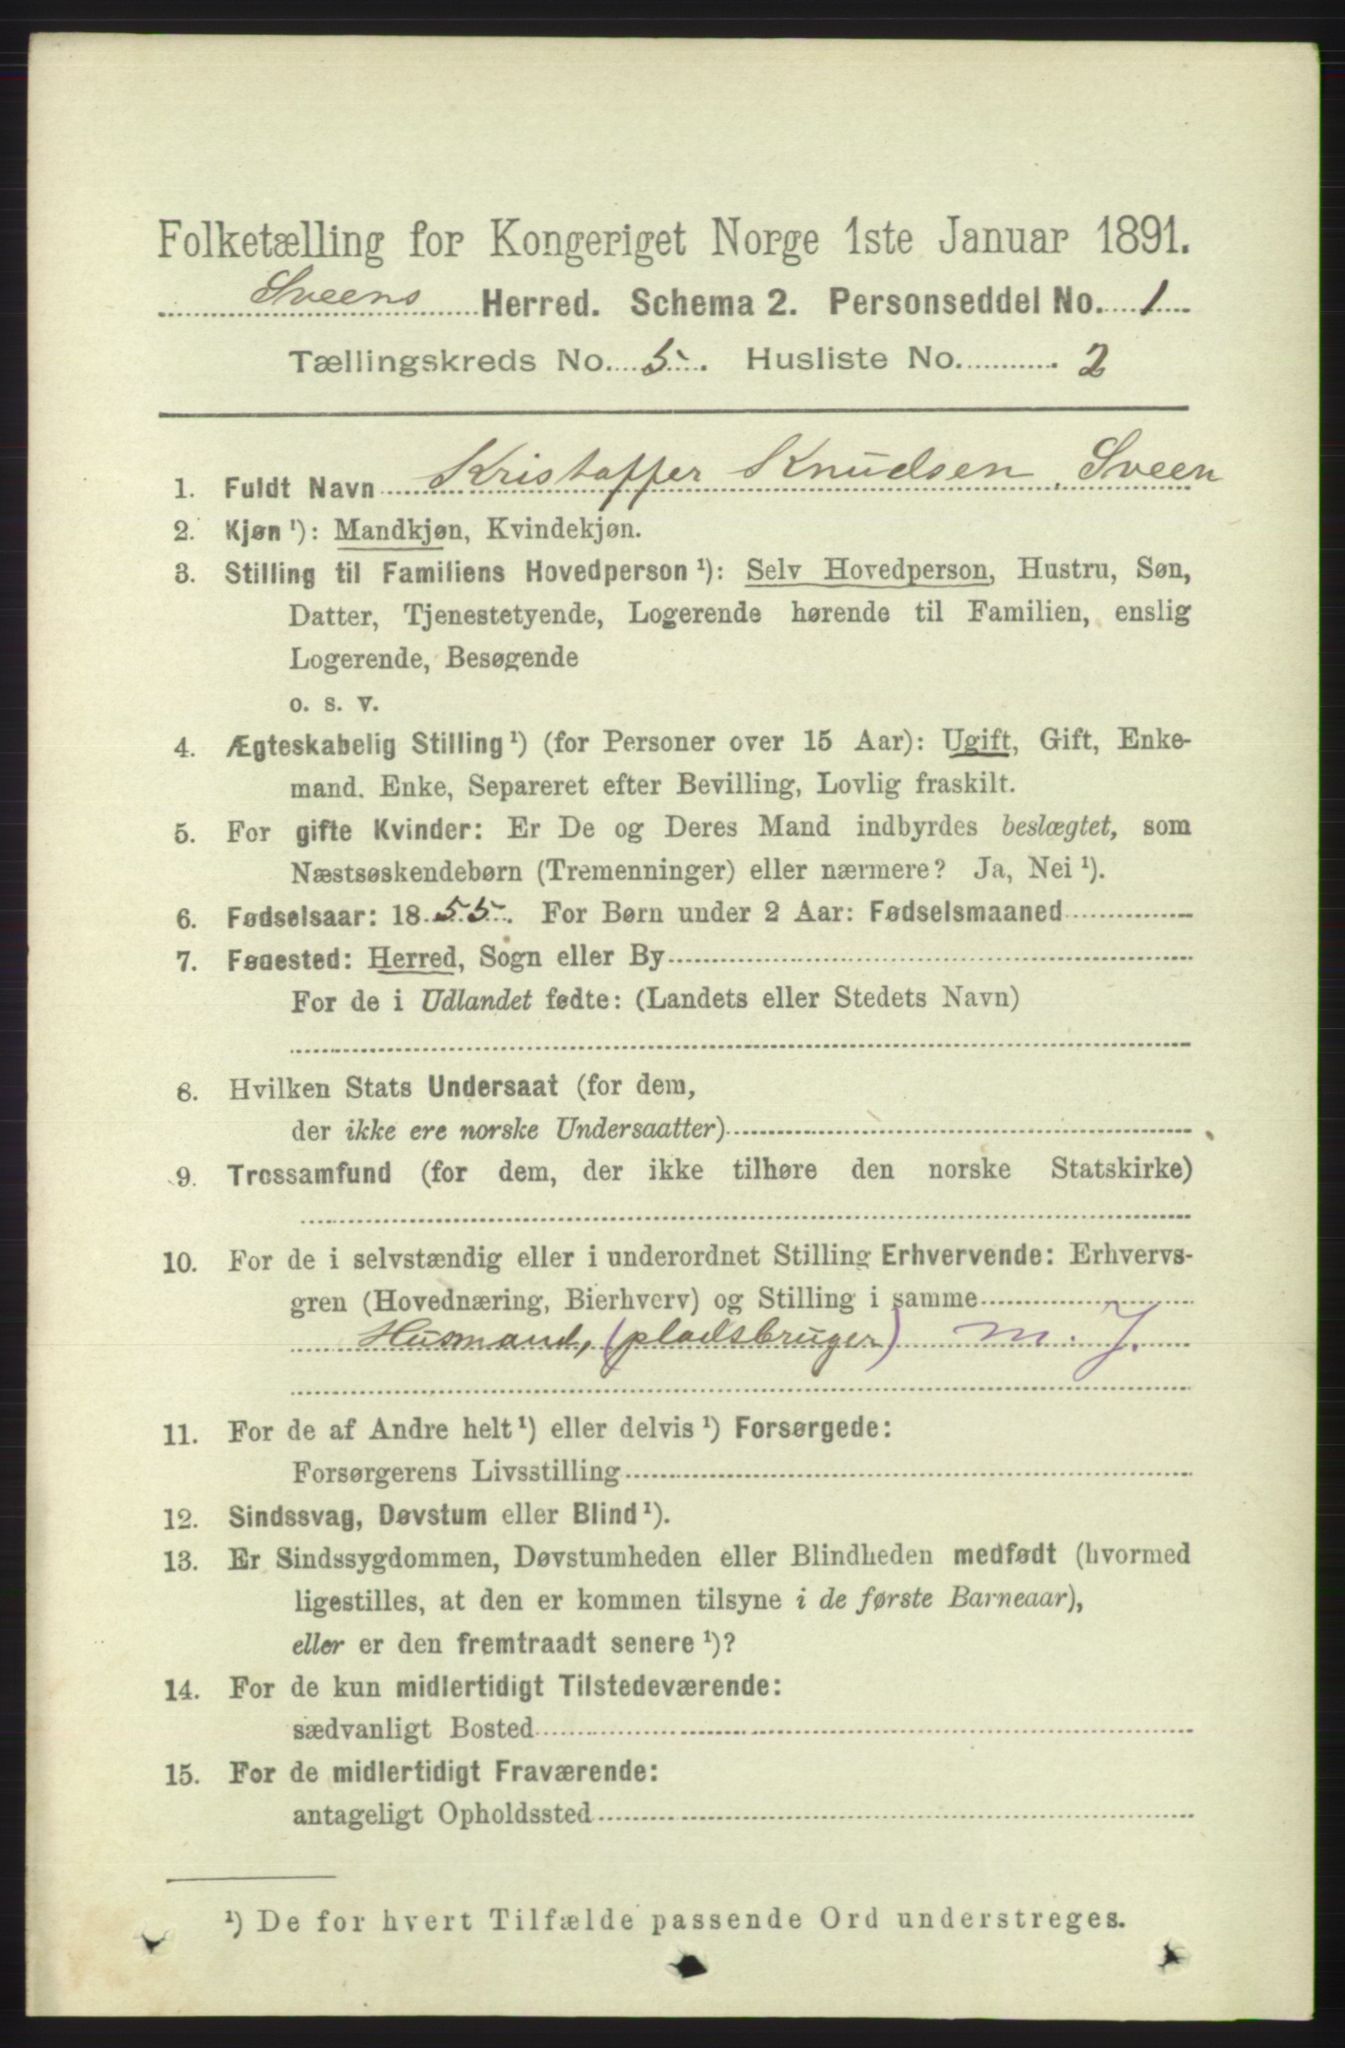 Folketælling for Kongeriget Norge 1ste Januar 1891.
Sveens Herred. Schema 2. Personseddel No. 1
Tællingskreds No. 5. Husliste No. 2
1. Fuldt Navn Kristoffer Knudsen Sveen
2. Kjøn ¹): Mandkjøn, Kvindekjøn.
3. Stilling til Familiens Hovedperson ¹): Selv Hovedperson, Hustru, Søn,
Datter, Tjenestetyende, Logerende hørende til Familien, enslig
Logerende, Besøgende
o. s. v.
4. Ægteskabelig Stilling ¹) (for Personer over 15 Aar): Ugift, Gift, Enke-
mand. Enke, Separeret efter Bevilling, Lovlig fraskilt.
5. For gifte Kvinder: Er De og Deres Mand indbyrdes beslægtet, som
Næstsøskendebørn (Tremenninger) eller nærmere? Ja, Nei ¹).
6. Fødselsaar: 1855. For Børn under 2 Aar: Fødselsmaaned
7. Føuested: Herred, Sogn eller By
For de i Udlandet fødte: (Landets eller Stedets Navn)
8. Hvilken Stats Undersaat (for dem,
der ikke ere norske Undersaatter)
9. Trossamfund (for dem, der ikke tilhøre den norske Statskirke)
10. For de i selvstændig eller i underordnet Stilling Erhvervende: Erhvervs-
gren (Hovednæring, Bierhverv) og Stilling i samme
Husmand, (pladsbruger) m. J.
11. For de af Andre helt ¹) eller delvis ¹) Forsørgede:
Forsørgerens Livsstilling
12. Sindssvag, Døvstum eller Blind ¹).
13. Er Sindssygdommen, Døvstumheden eller Blindheden medfødt (hvormed
ligestilles, at den er kommen tilsyne i de første Barneaar),
eller er den fremtraadt senere ¹)?
14. For de kun midlertidigt Tilstedeværende:
sædvanligt Bosted
15. For de midlertidigt Fraværende:
antageligt Opholdssted
¹) De for hvert Tilfælde passende Ord understreges.